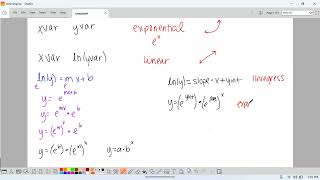 xvar yvar exponential
e^x
xvar ln(yvar) linear
ln(y) = mx+b
e e
y = e^(mx+b)
y = e^(mx) · e^b
y = (e^m)^x · e^b
y = (e^b) · (e^m)^x
y = a·b^x
ln(y) = slope · x + yint linregress
y = (e^yint) · (e^slope)^x